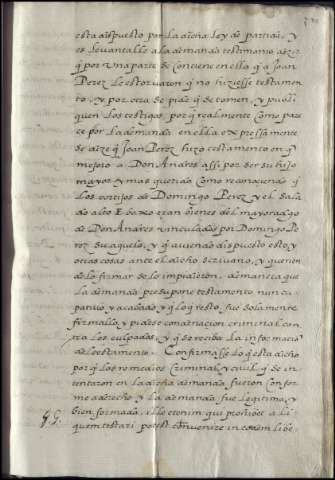 esta dispuesto por la dicha ley de partida, y
es levantalle a la demanda testimonio dezir
q̃ por una parte se contiene en ella q̃ a Joan
Perez le estorvaron q̃ no hiziesse testamen
to, y por otra se pide q̃ se tomen, y publi
quen los testigos, por q̃ realmente como pare
ce por la demanda en ella expressamente
se dize q̃ Joan Perez hizo testamento en q̃
mejoro a Don Andres assi por ser su hijo
mayor y mas querido como reconociendo q̃
los cortijos de Domingo Perez y el Sala
do alto E baxo eran bienes del mayorazgo
de Don Andres vinculados por Domingo Pe
rez su aguelo, y q̃ aviendo dispuesto esto, y
otras cosas ante el dicho escrivano, y queriendo
lo firmar se lo impidieron, de manera que
la demanda presupone testamento nuncu
pativo y acabado y q̃ lo q̃ resto fue solamente
firmallo y pidese condenacion criminal con
tra los culpados, y q̃ se reciba la informacio
de los testamento. Confirmasse lo q̃ esta dicho
por q̃ los remedios criminal, y civil q̃ se in
tentaron en la dicha demanda fueron confor
me a derecho y la demanda fue legitima, y
bien formada, ille etenim qui prohibet ali
quem testari potest conveniri in eodem libe